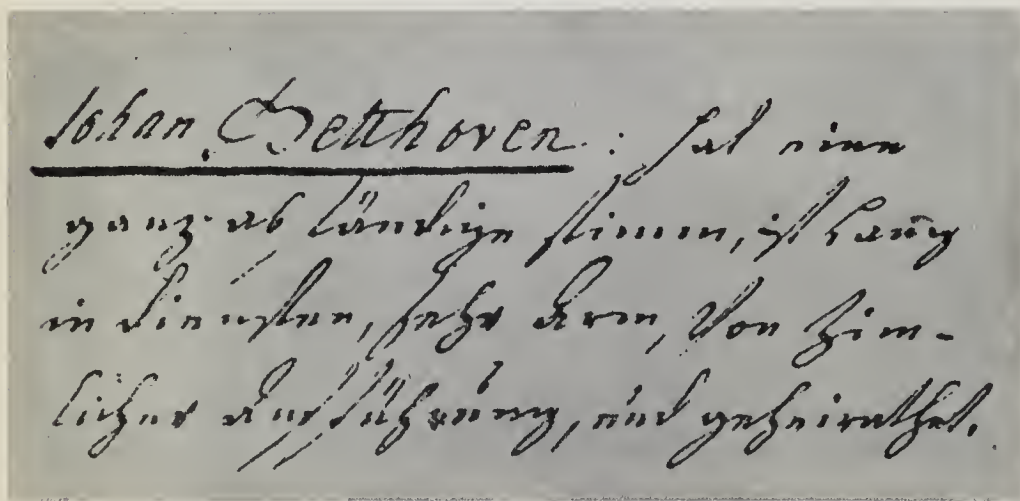 Johan Betthoven : hat eine
ganz abständige stimm, ist lang
in diensten, sehr arm, von zim-
licher aufführung, und geheirathet.